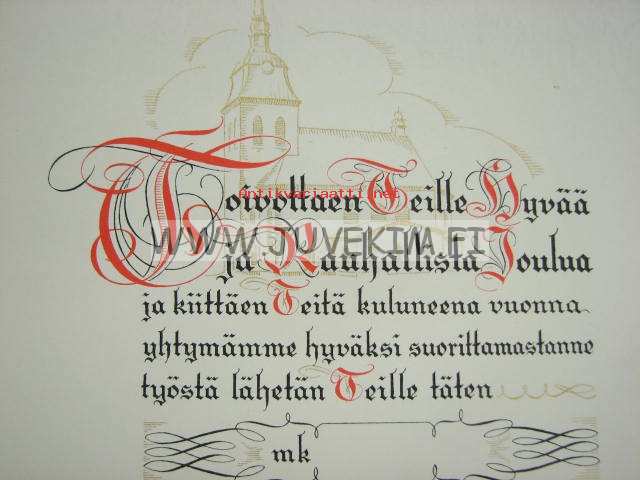 Toivottaen Teille Hyvää
antikvariaatti.net
WWW.JUVEKIM.FI
ja Rauhallista Joulua
ja kiittäen Teitä kuluneena vuonna
yhtymämme hyväksi suorittamastanne
työstä lähetän Teille täten
mk